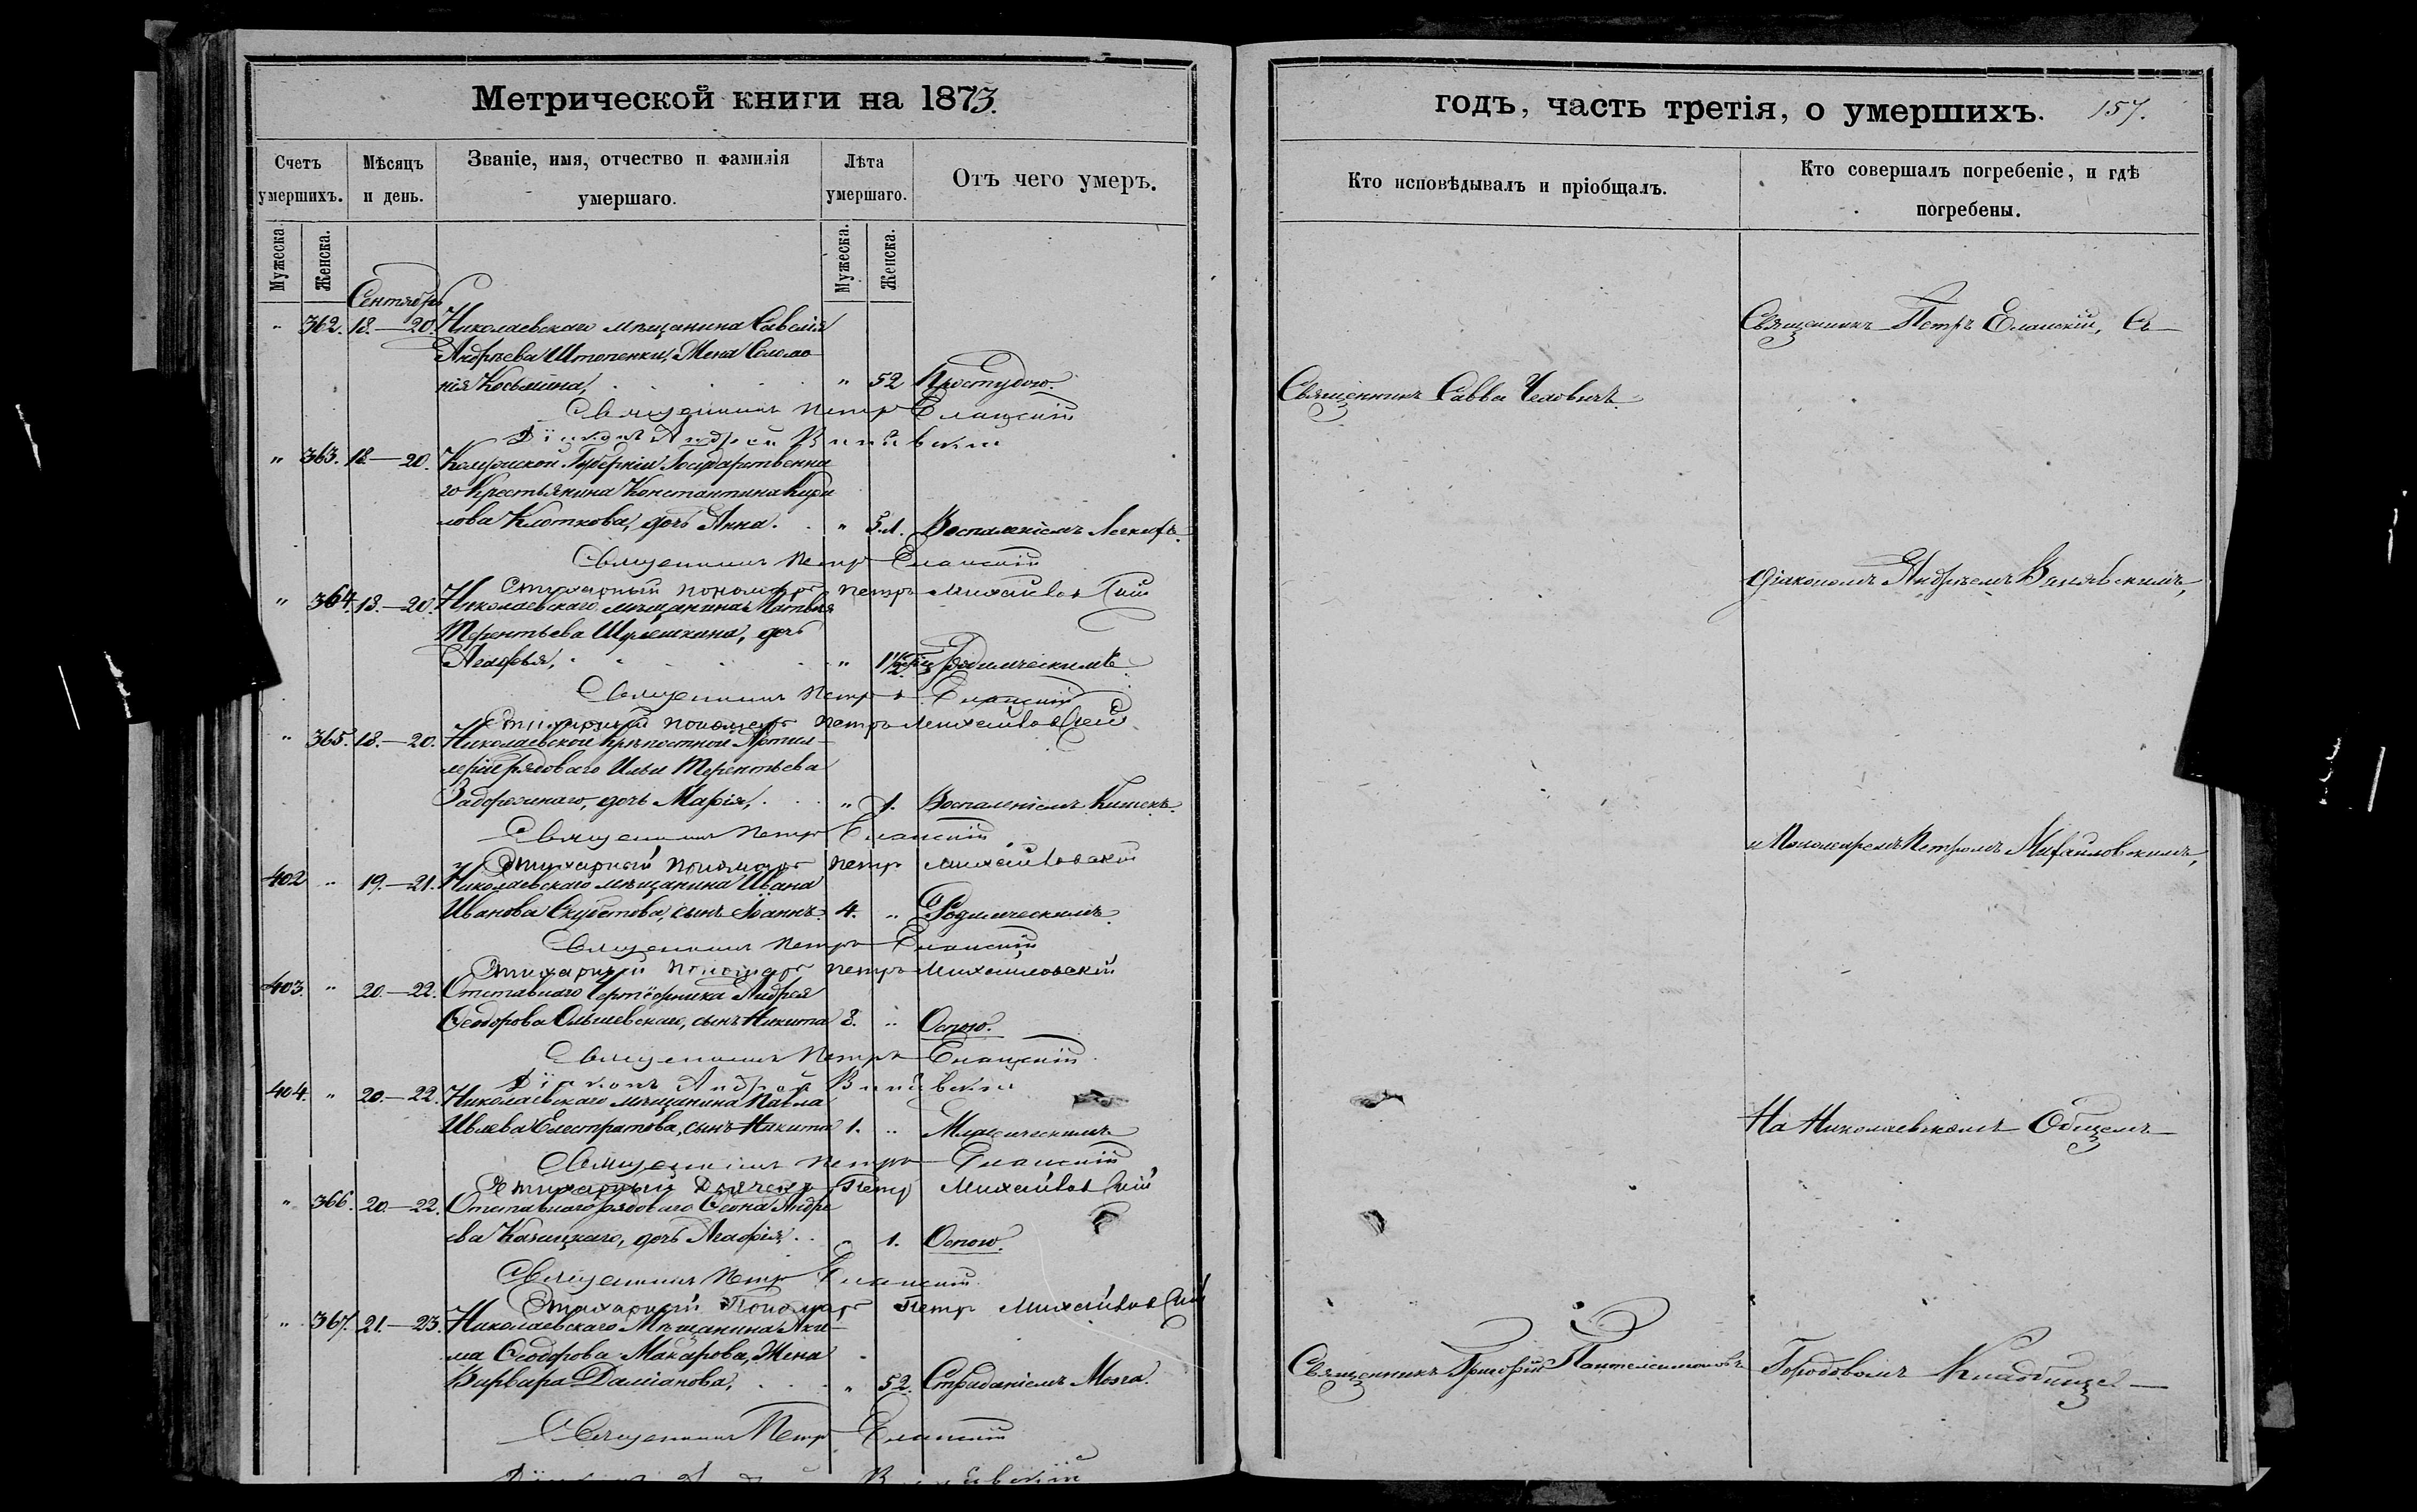 Метрической книги на 1873.
Счетъ умершихъ.
Мѣсяцъ и день.
Званіе, имя, отчество и фамилія умершаго.
Лѣта умершаго.
Отъ чего умеръ.
Мужеска.
Женска.
Мужеска.
Женска.
Сентябрь
" 362. 18.—20. Николаевскаго мѣщанина Савелія
Андрѣева Штопенки, Жена Соломо-
нія Косьмина, " 52 Простудою.
Священникъ Петръ Еланскій
Діаконъ Андрей
" 363. 18.—20. Губерніи Государственна
го Крестьянина Константина Кири
лова Клоткова, дочь Анна. " 5.л. Воспаленіемъ Легкихъ.
Священникъ Петръ Еланскій
Стихарный пономарь Петръ Михайловскій
" 364. 18.—20. Николаевскаго мѣщанина Матвея
Терентьева дочь
Агафья, " Родимическимъ
Священникъ Петръ Еланскій
Стихарный пономарь Петръ Михайловскій
" 365. 18.—20. Николаевской Крѣпостной Артил-
леріи рядоваго Ильи Терентьева
Задорожнаго, дочь Марія, " 1. Воспаленіемъ Кишекъ.
Священникъ Петръ Еланскій
Стихарный пономарь Петръ Михайловскій
402 " 19.—21. Николаевскаго мѣщанина Ивана
Иванова сынъ Іоаннъ. 4. " Родимическимъ.
Священникъ Петръ Еланскій
Стихарный пономарь Петръ Михайловскій
403. " 20.—22. Отставнаго Андрея
Ѳеодорова сынъ Никита 3. " Оспою.
Священникъ Петръ Еланскій
Діаконъ Андрей
404. " 20.—22. Николаевскаго мѣщанина Павла
Елистратова, сынъ Никита 1. "
Священникъ Петръ Еланскій
Стихарный Петръ Михайловскій
" 366. 20.—22. Отставнаго рядоваго Андре
ева дочь Агафія. 1. Оспою.
Священникъ Петръ Еланскій
Стихарный Пономарь Петръ Михайловскій
" 367. 21.—23. Николаевскаго Мѣщанина Аки-
ма Ѳеодорова Макарова, Жена
Варвара Даміанова, " 52. Страданіемъ Мозга.
Священникъ Петръ Еланскій
годъ, часть третія, о умершихъ. 157.
Кто исповѣдывалъ и пріобщалъ.
Кто совершалъ погребеніе, и гдѣ погребены.
Священникъ Петръ Еланскій, Съ
Священникъ Савва
Діакономъ Андреемъ
и Пономаремъ Петромъ Михайловскимъ,
На Николаевскомъ Общемъ
Священникъ Григорій Пантелеимоновъ
Городовомъ Кладбищѣ